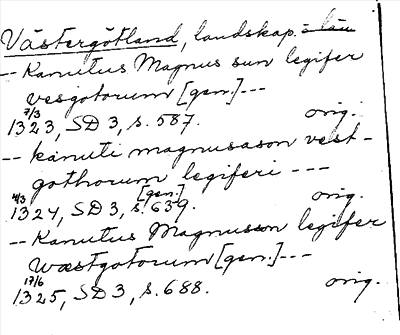 Västergötland, landskap.
-- Kanutus Magnus sun legifer
vesgotorum [gen.] ---
7/3
1323, SD 3, s. 587. orig.
-- kanuti magnusason vest-
gothorum legiferi ---
4/3 [gen.]
1324, SD 3, s. 639. orig.
-- Kanutus Magnusson legifer
Wæstgotorum [gen.] ---
17/6
1325, SD 3, s. 688. orig.